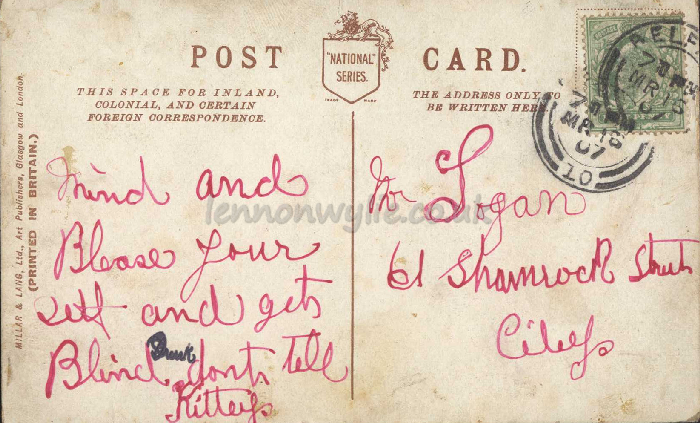 POST CARD.
"NATIONAL" SERIES.
TRADE MARK
THIS SPACE FOR INLAND,
COLONIAL, AND CERTAIN
FOREIGN CORRESPONDENCE.
THE ADDRESS ONLY TO
BE WRITTEN HERE.
MILLAR & LANG, Ltd., Art Publishers, Glasgow and London.
(PRINTED IN BRITAIN.)
Mind and
Blease your
self and get
Blind Drunk dont tell
Kitty
Mr Logan
61 Shamrock Street
City
BELF
MR 18
07
7
MR 18
07
10
lennonwylie.co.uk